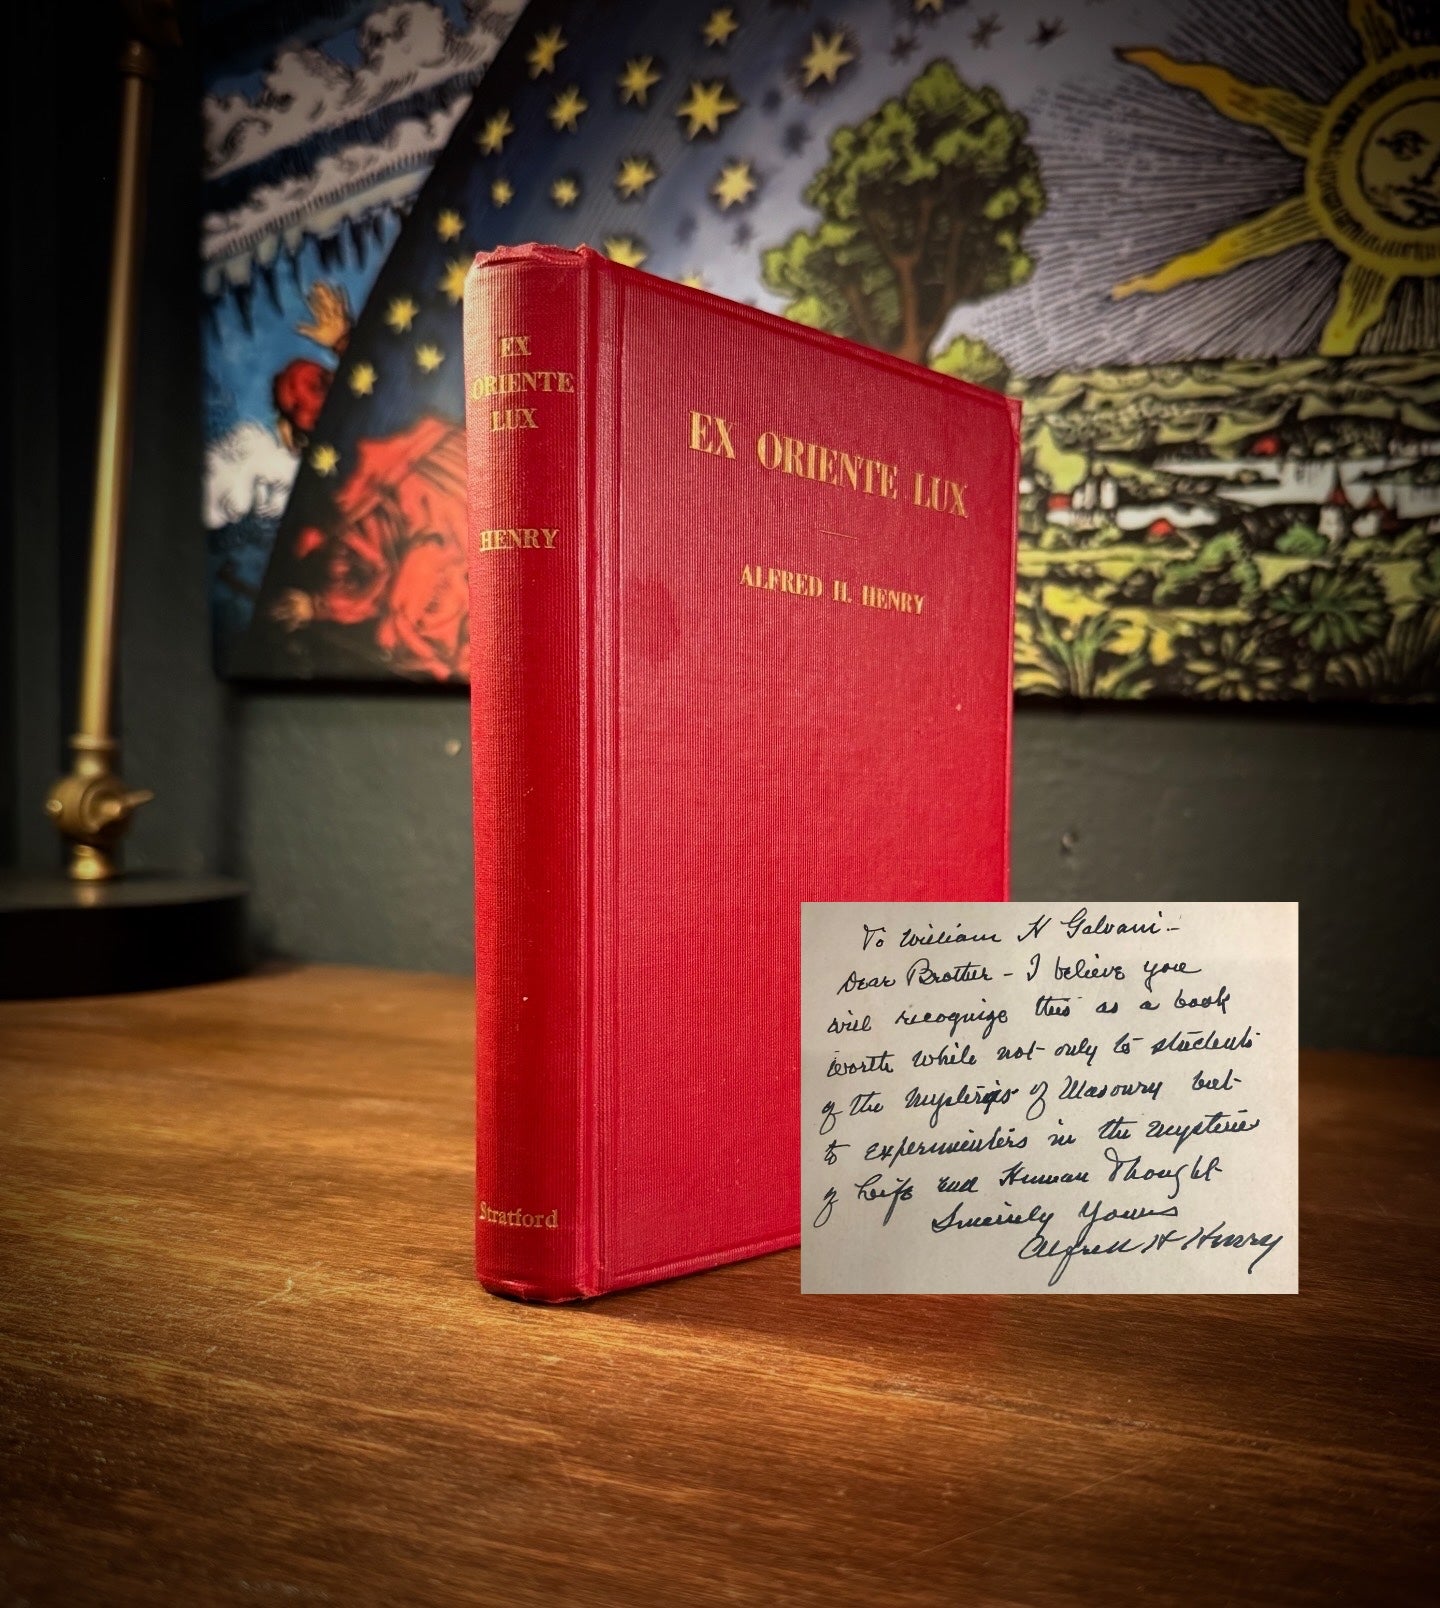 EX
ORIENTE
LUX
HENRY
Stratford
EX ORIENTE LUX
ALFRED H. HENRY
To William H Galvani –
Dear Brother – I believe you
will recognize this as a book
worth while not only to students
of the Mysteries of Masonry but
to experimenters in the Mysteries
of Life and Human Thought
Sincerely Yours
Alfred H Henry